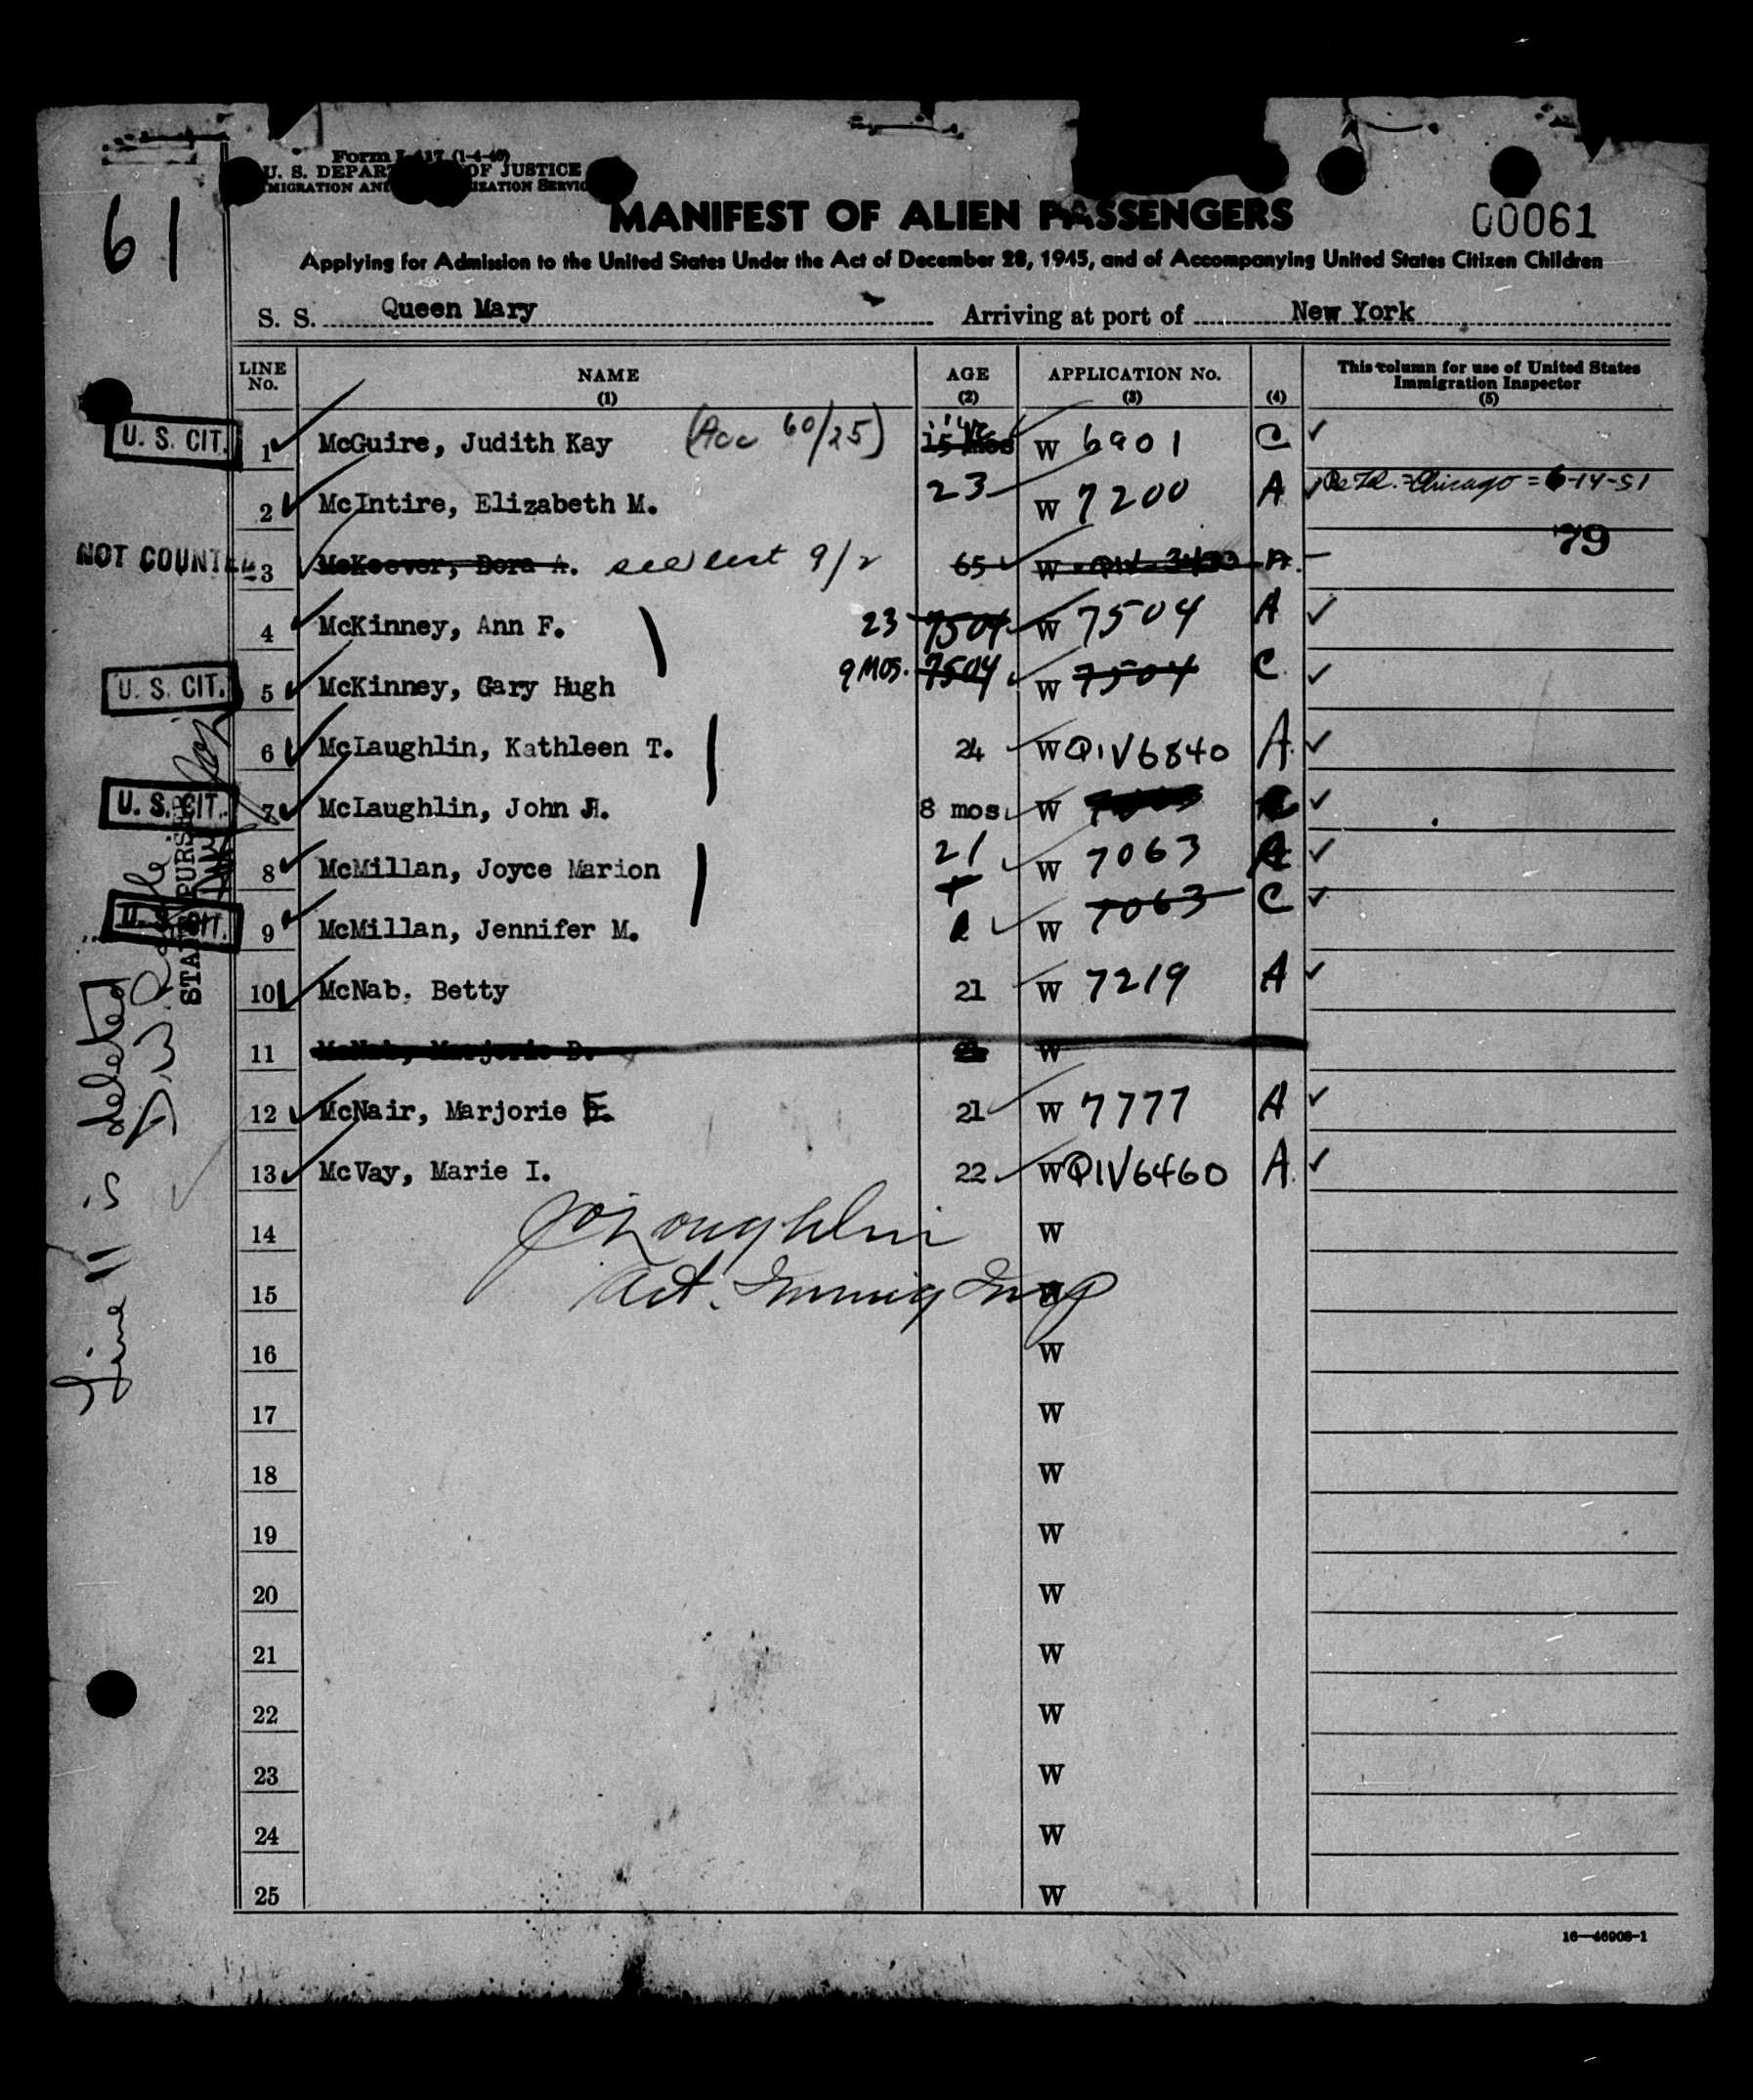 61
Form I-417 (1-4-46)
U. S. DEPART OF JUSTICE
MIGRATION AND IZATION SERVIC
MANIFEST OF ALIEN PASSENGERS
00061
Applying for Admission to the United States Under the Act of December 28, 1945, and of Accompanying United States Citizen Children
S. S. Queen Mary Arriving at port of New York
LINE No. NAME (1) AGE (2) APPLICATION No. (3) (4) This column for use of United States Immigration Inspector (5)
U. S. CIT. 1 McGuire, Judith Kay (Acc 60/25) 15 Mos W 6901 C ✓
2 McIntire, Elizabeth M. 23 W 7200 A ✓ Chicago = 6-14-51
79
NOT COUNTED 3 McKeever, Dora A. see list 9/2 65 W QIV A. –
4 McKinney, Ann F. 23 7504 W 7504 A ✓
U. S. CIT. 5 McKinney, Gary Hugh 9 MOS. 7504 W 7504 C ✓
6 McLaughlin, Kathleen T. 24 W QIV6840 A. ✓
U. S. CIT. 7 McLaughlin, John H. 8 mos W ✓
8 McMillan, Joyce Marion 21 W 7063 A ✓
U. S. CIT. 9 McMillan, Jennifer M. W 7063 C ✓
10 McNab. Betty 21 W 7219 A ✓
11 McNab, Marjorie D. W
12 McNair, Marjorie E. 21 W 7777 A ✓
13 McVay, Marie I. 22 W QIV6460 A. ✓
14 JO'Loughlin W
15 Act. Immig Insp W
16 W
17 W
18 W
19 W
20 W
21 W
22 W
23 W
24 W
25 W
16—46908-1
Line 11 is deleted
STAFF PURSER